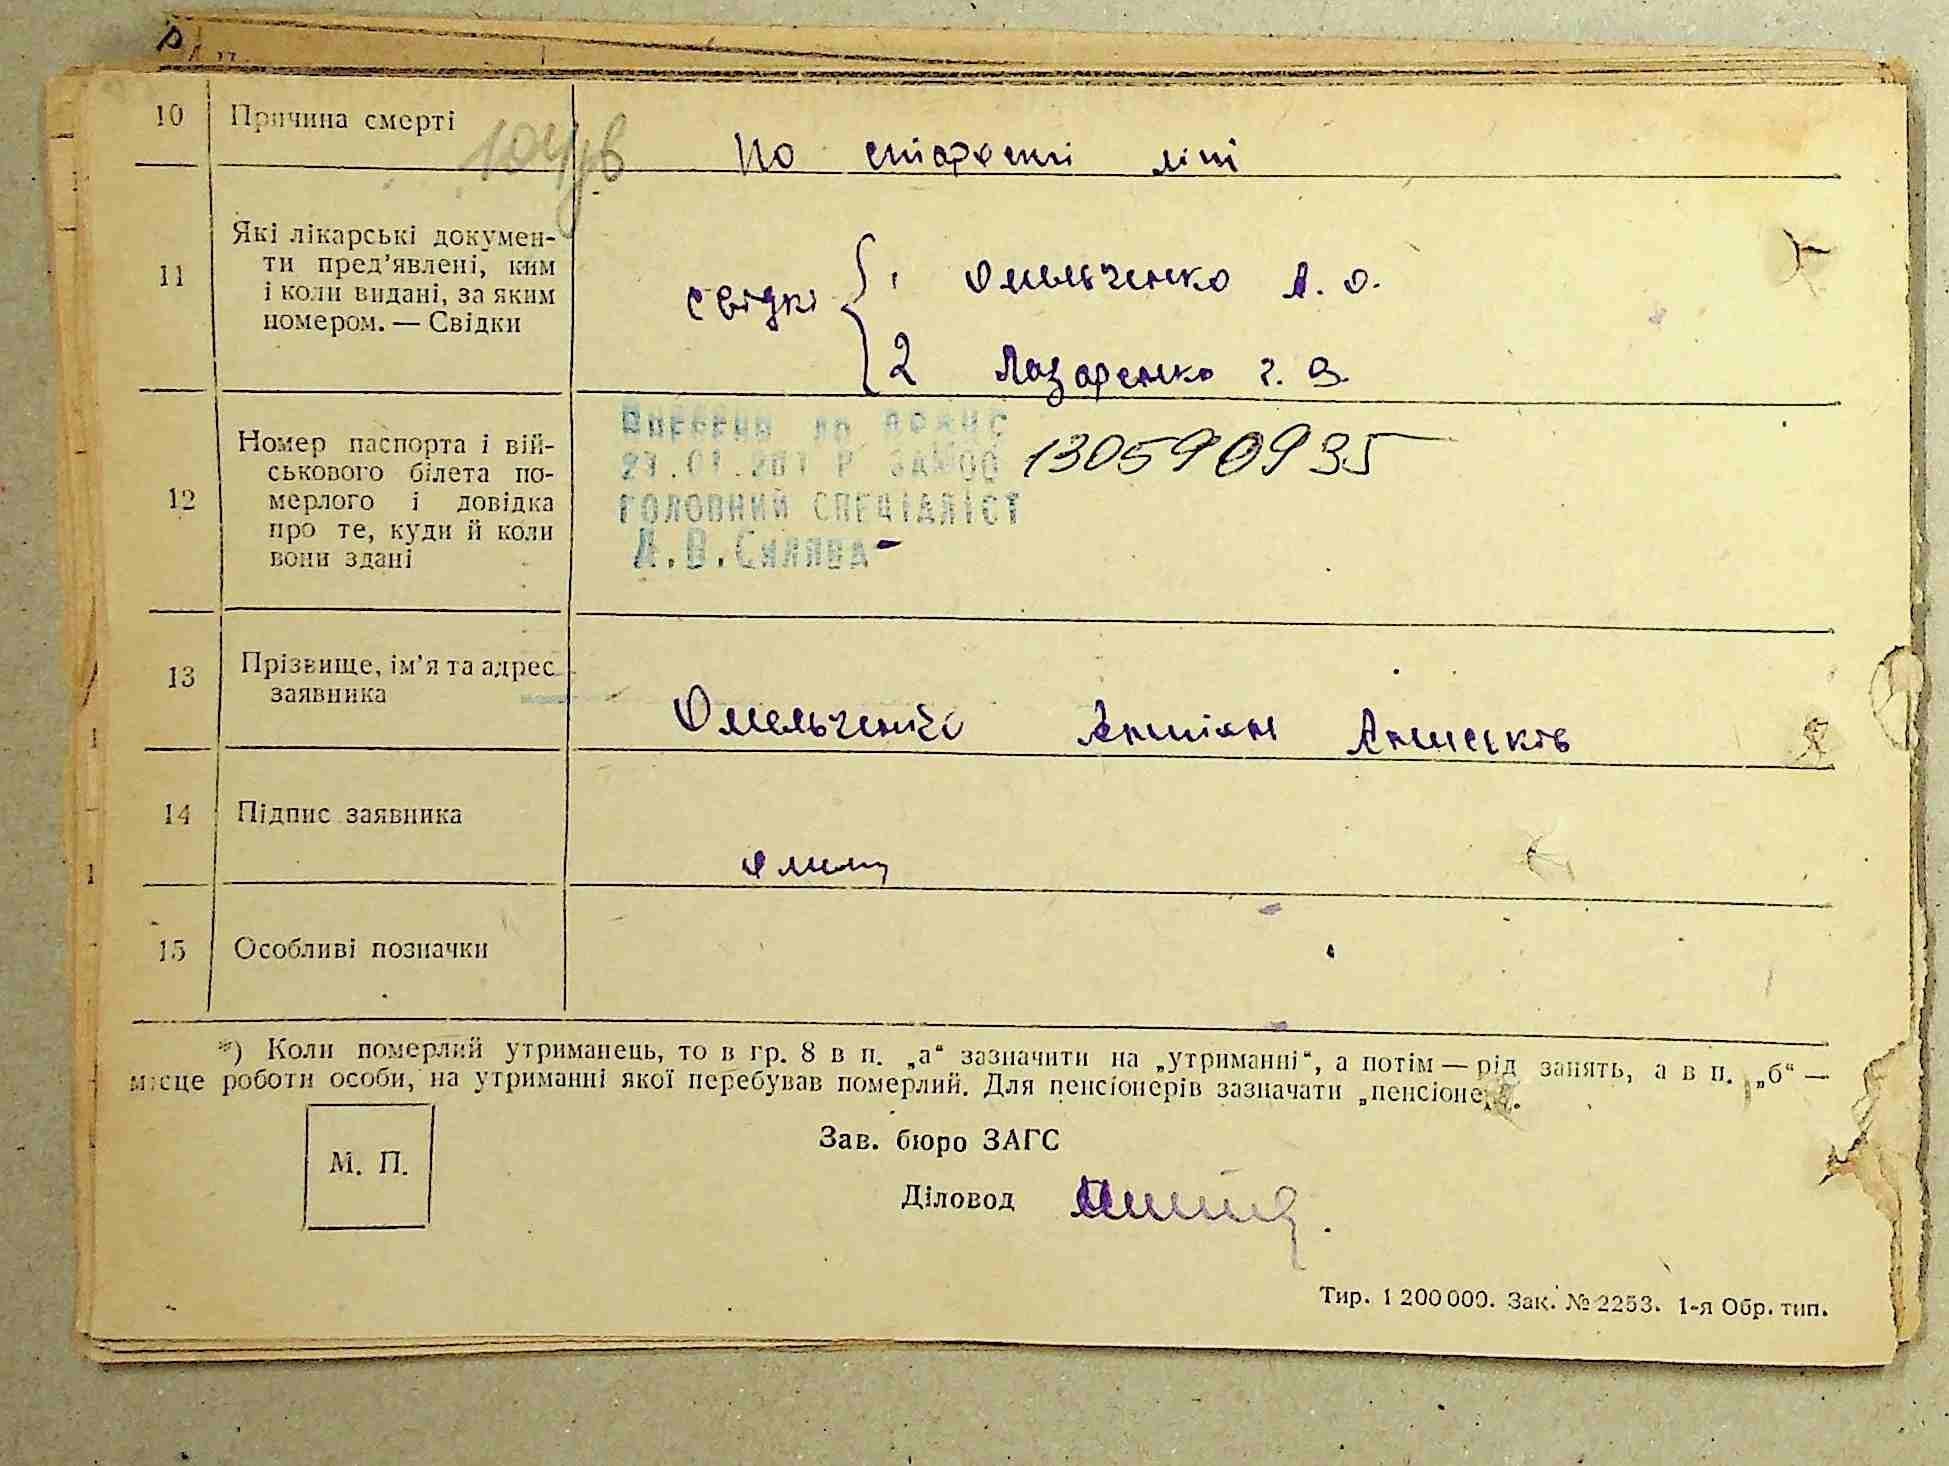 10 Причина смерті
по старості літ
11 Які лікарські докумен-
ти пред’явлені, ким
і коли видані, за яким
номером. — Свідки
свідкі
1 Омельченко А. О.
2 Лазаренко Г. З.
12 Номер паспорта і вій-
ськового білета по-
мерлого і довідка
про те, куди й коли
вони здані
Внесени до
130590935
ГОЛОВНИЙ СПЕЦІАЛІСТ
13 Прізвище, ім’я та адрес
заявника
Омельченко
14 Підпис заявника
15 Особливі позначки
*) Коли померлий утриманець, то в гр. 8 в п. „а“ зазначити на „утриманні“, а потім — рід занять, а в п. „б“ —
місце роботи особи, на утриманні якої перебував померлий. Для пенсіонерів зазначати „пенсіонер“.
М. П.
Зав. бюро ЗАГС
Діловод
Тир. 1 200 000. Зак. № 2253. 1-я Обр. тип.